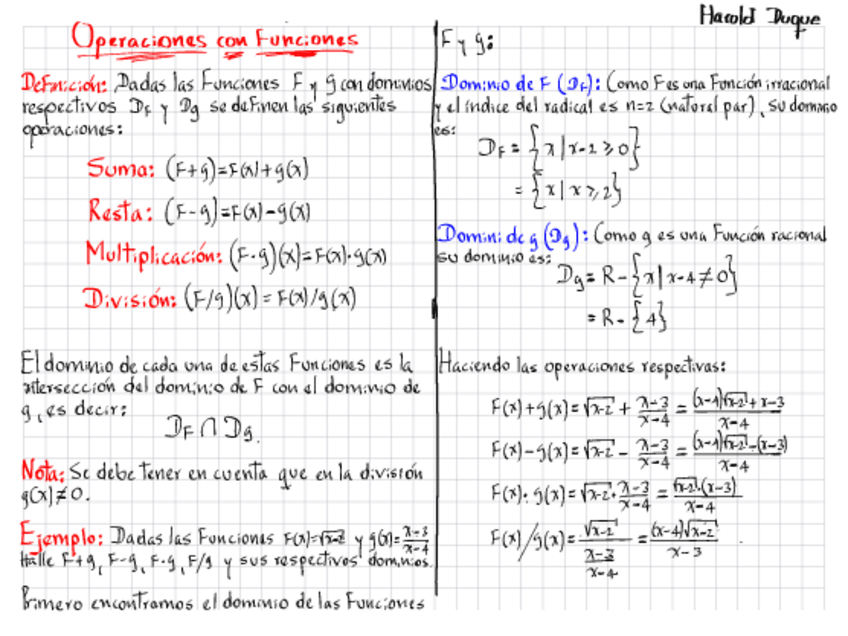 Harold Duque
Operaciones con Funciones
Definición: Dadas las Funciones F y g con dominios
respectivos DF y Dg se definen las siguientes
operaciones:
Suma: (F+g)=F(x)+g(x)
Resta: (F-g)=F(x)-g(x)
Multiplicación: (F·g)(x)=F(x)·g(x)
División: (F/g)(x)=F(x)/g(x)
El dominio de cada una de estas Funciones es la
intersección del dominio de F con el dominio de
g, es decir:
DF ∩ Dg.
Nota: Se debe tener en cuenta que en la división
g(x)≠0.
Ejemplo: Dadas las Funciones F(x)=√x-2 y g(x)=x-3/x-4
Halle F+g, F-g, F·g, F/g y sus respectivos dominios.
Primero encontramos el dominio de las Funciones
F y g:
Dominio de F (DF): Como F es una Función irracional
y el índice del radical es n=2 (natural par), su dominio
es:
DF = {x|x-2⩾0}
= {x|x⩾2}
Domini de g (Dg): Como g es una Función racional
su dominio es:
Dg = R-{x|x-4≠0}
= R-{4}
Haciendo las operaciones respectivas:
F(x)+g(x)=√x-2 + x-3/x-4 = (x-4)√x-2+x-3/x-4
F(x)-g(x)=√x-2 - x-3/x-4 = (x-4)√x-2-(x-3)/x-4
F(x)·g(x)=√x-2·x-3/x-4 = √x-2·(x-3)/x-4
F(x)/g(x)=√x-2/x-3/x-4 = (x-4)√x-2/x-3